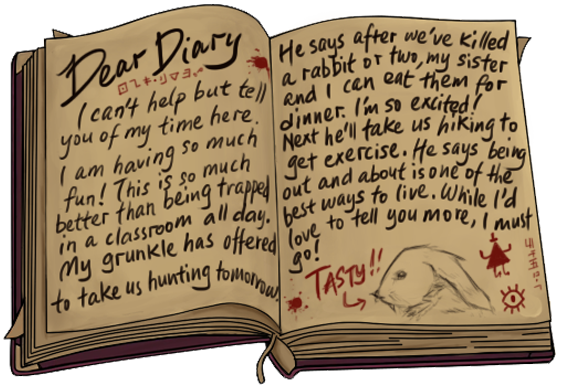 Dear Diary
I can't help but tell
you of my time here.
I am having so much
fun! This is so much
better than being trapped
in a classroom all day.
My grunkle has offered
to take us hunting tomorrow.
He says after we've killed
a rabbit or two, my sister
and I can eat them for
dinner. I'm so excited!
Next he'll take us hiking to
get exercise. He says being
out and about is one of the
best ways to live. While I'd
love to tell you more, I must
go!
TASTY!!